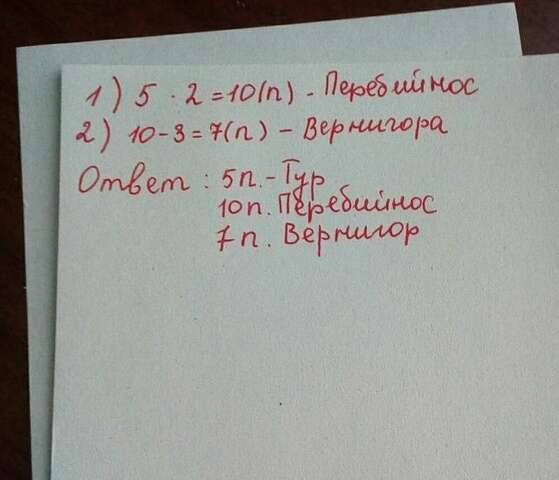 1) 5 · 2 = 10(п) - Перебийнос
2) 10-3 = 7(п) - Вернигора
Ответ: 5п. - Тур
10п. Перебийнос
7п. Вернигор